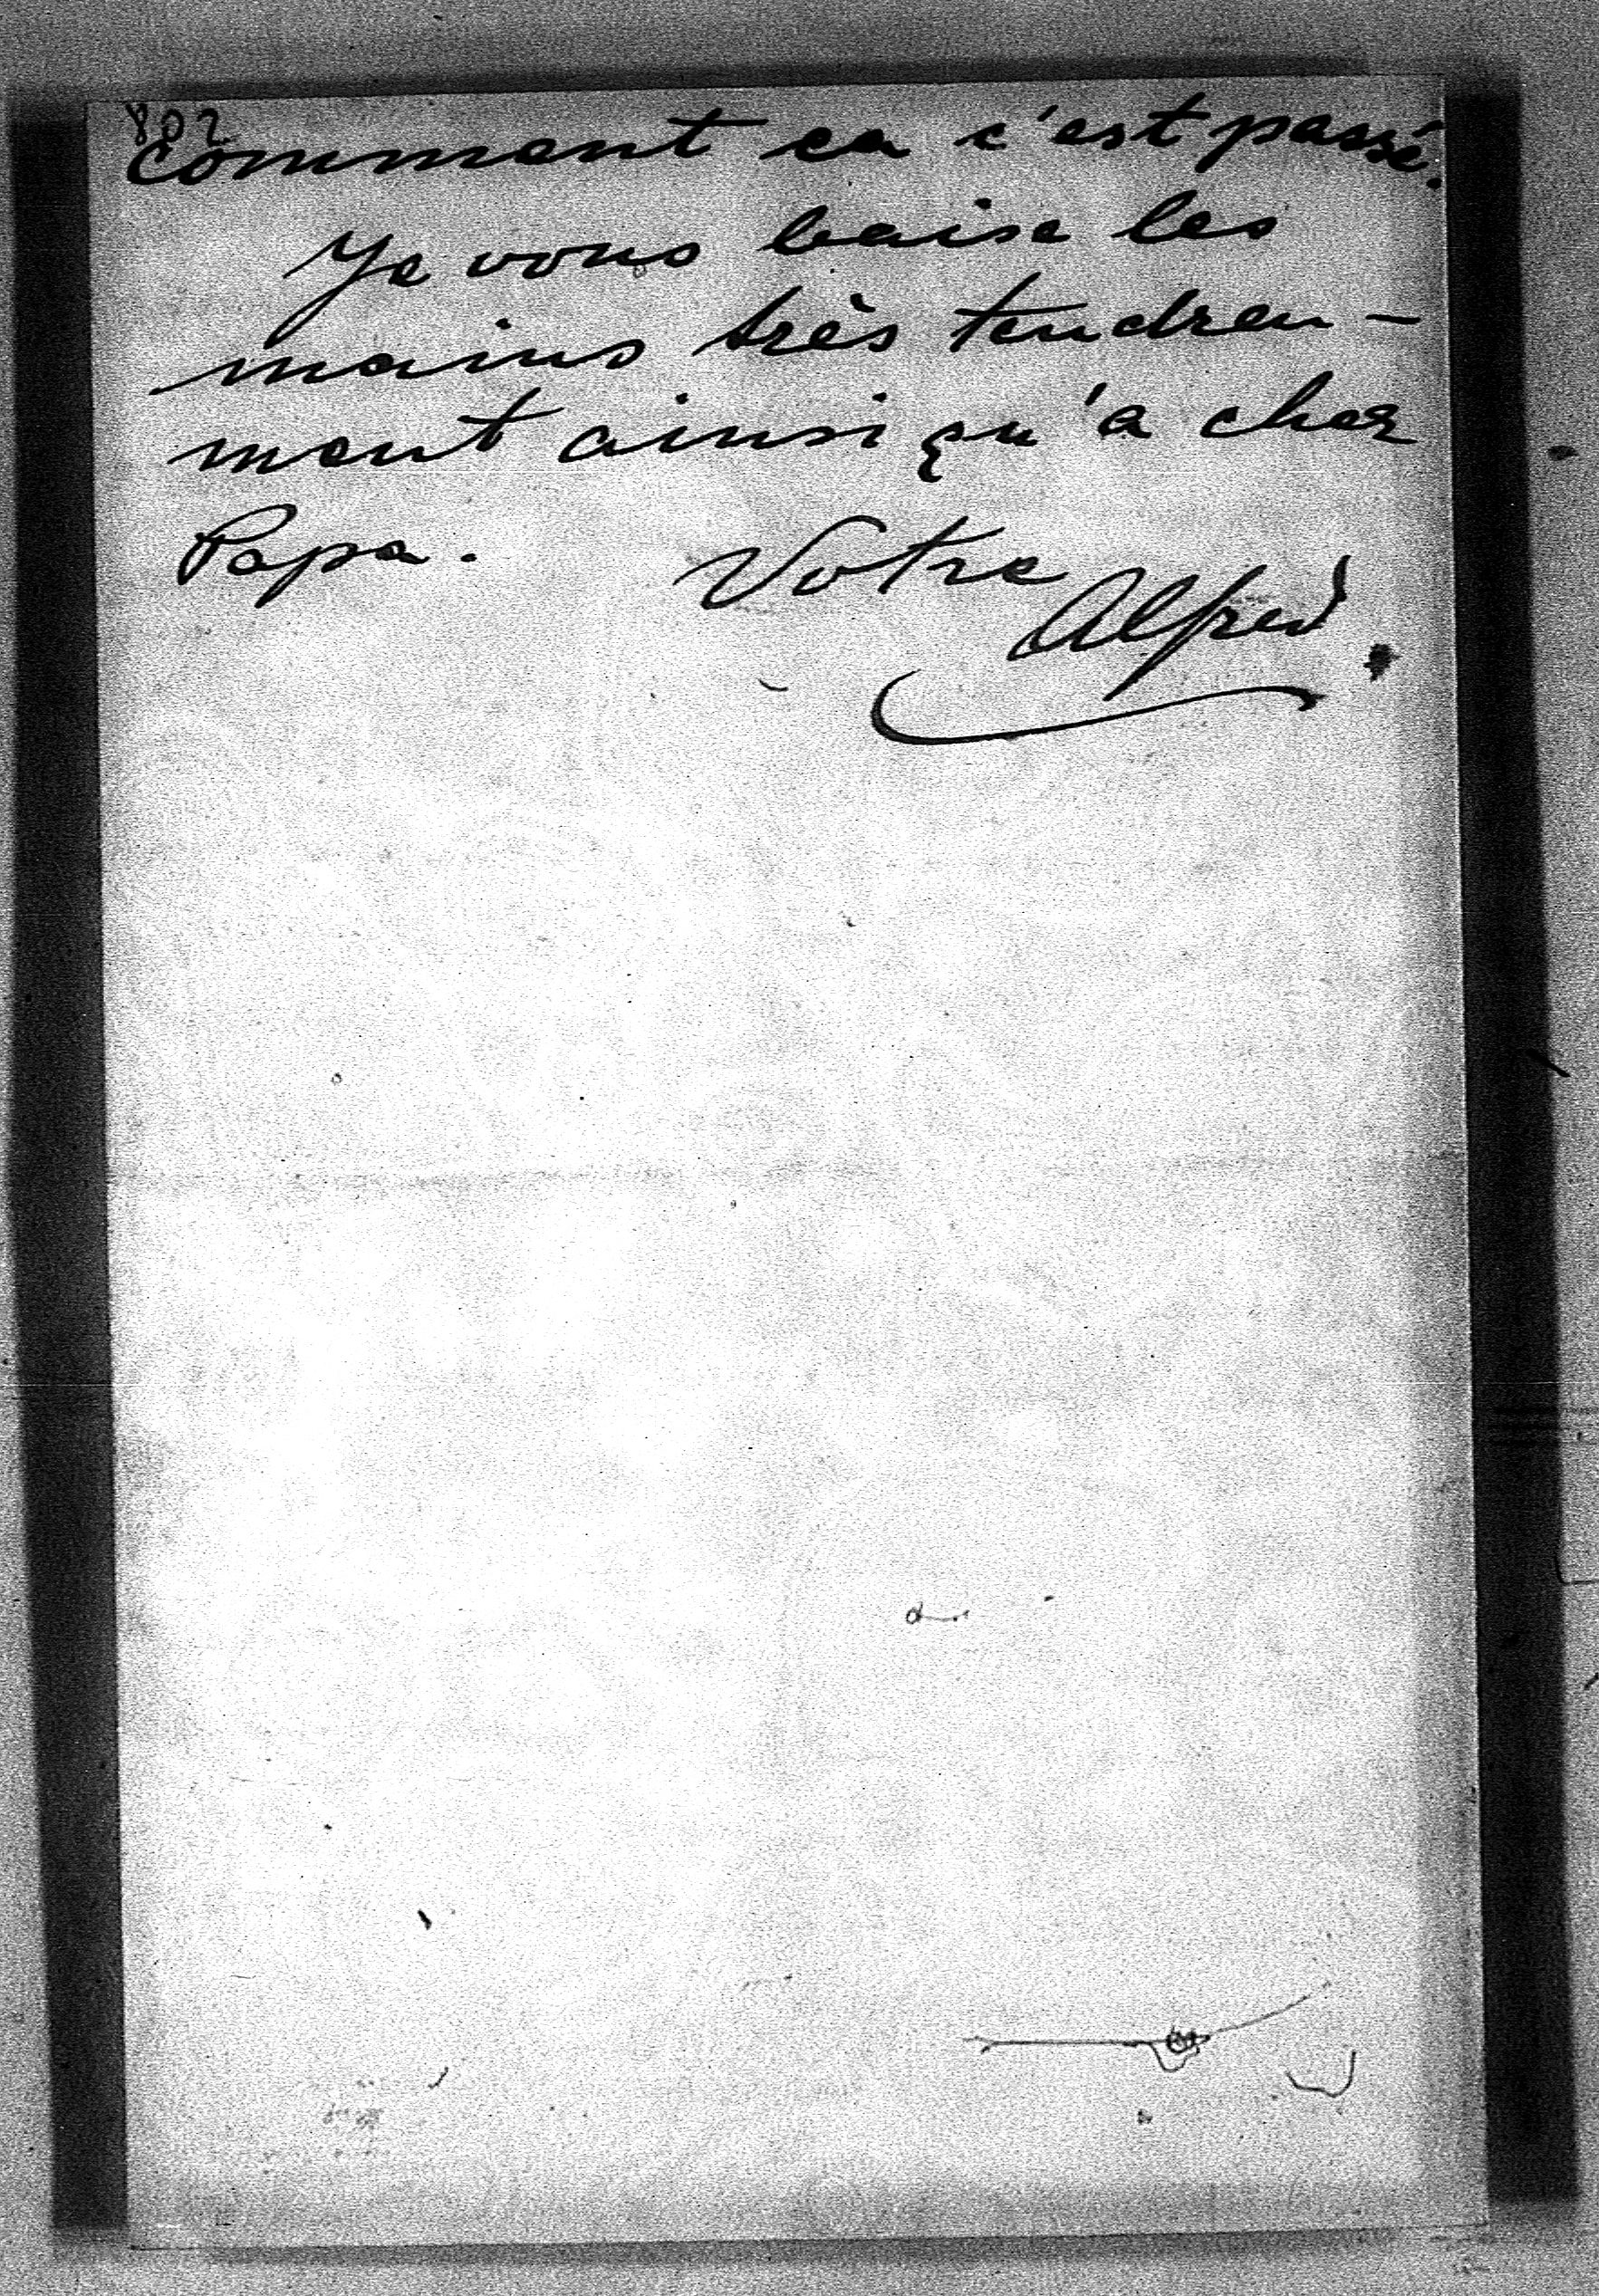 802
comment ca c'est passé.
Je vous baise les
mains très tendrem-
ment ainsi qu'a cher
Papa. Votre
Alfred.